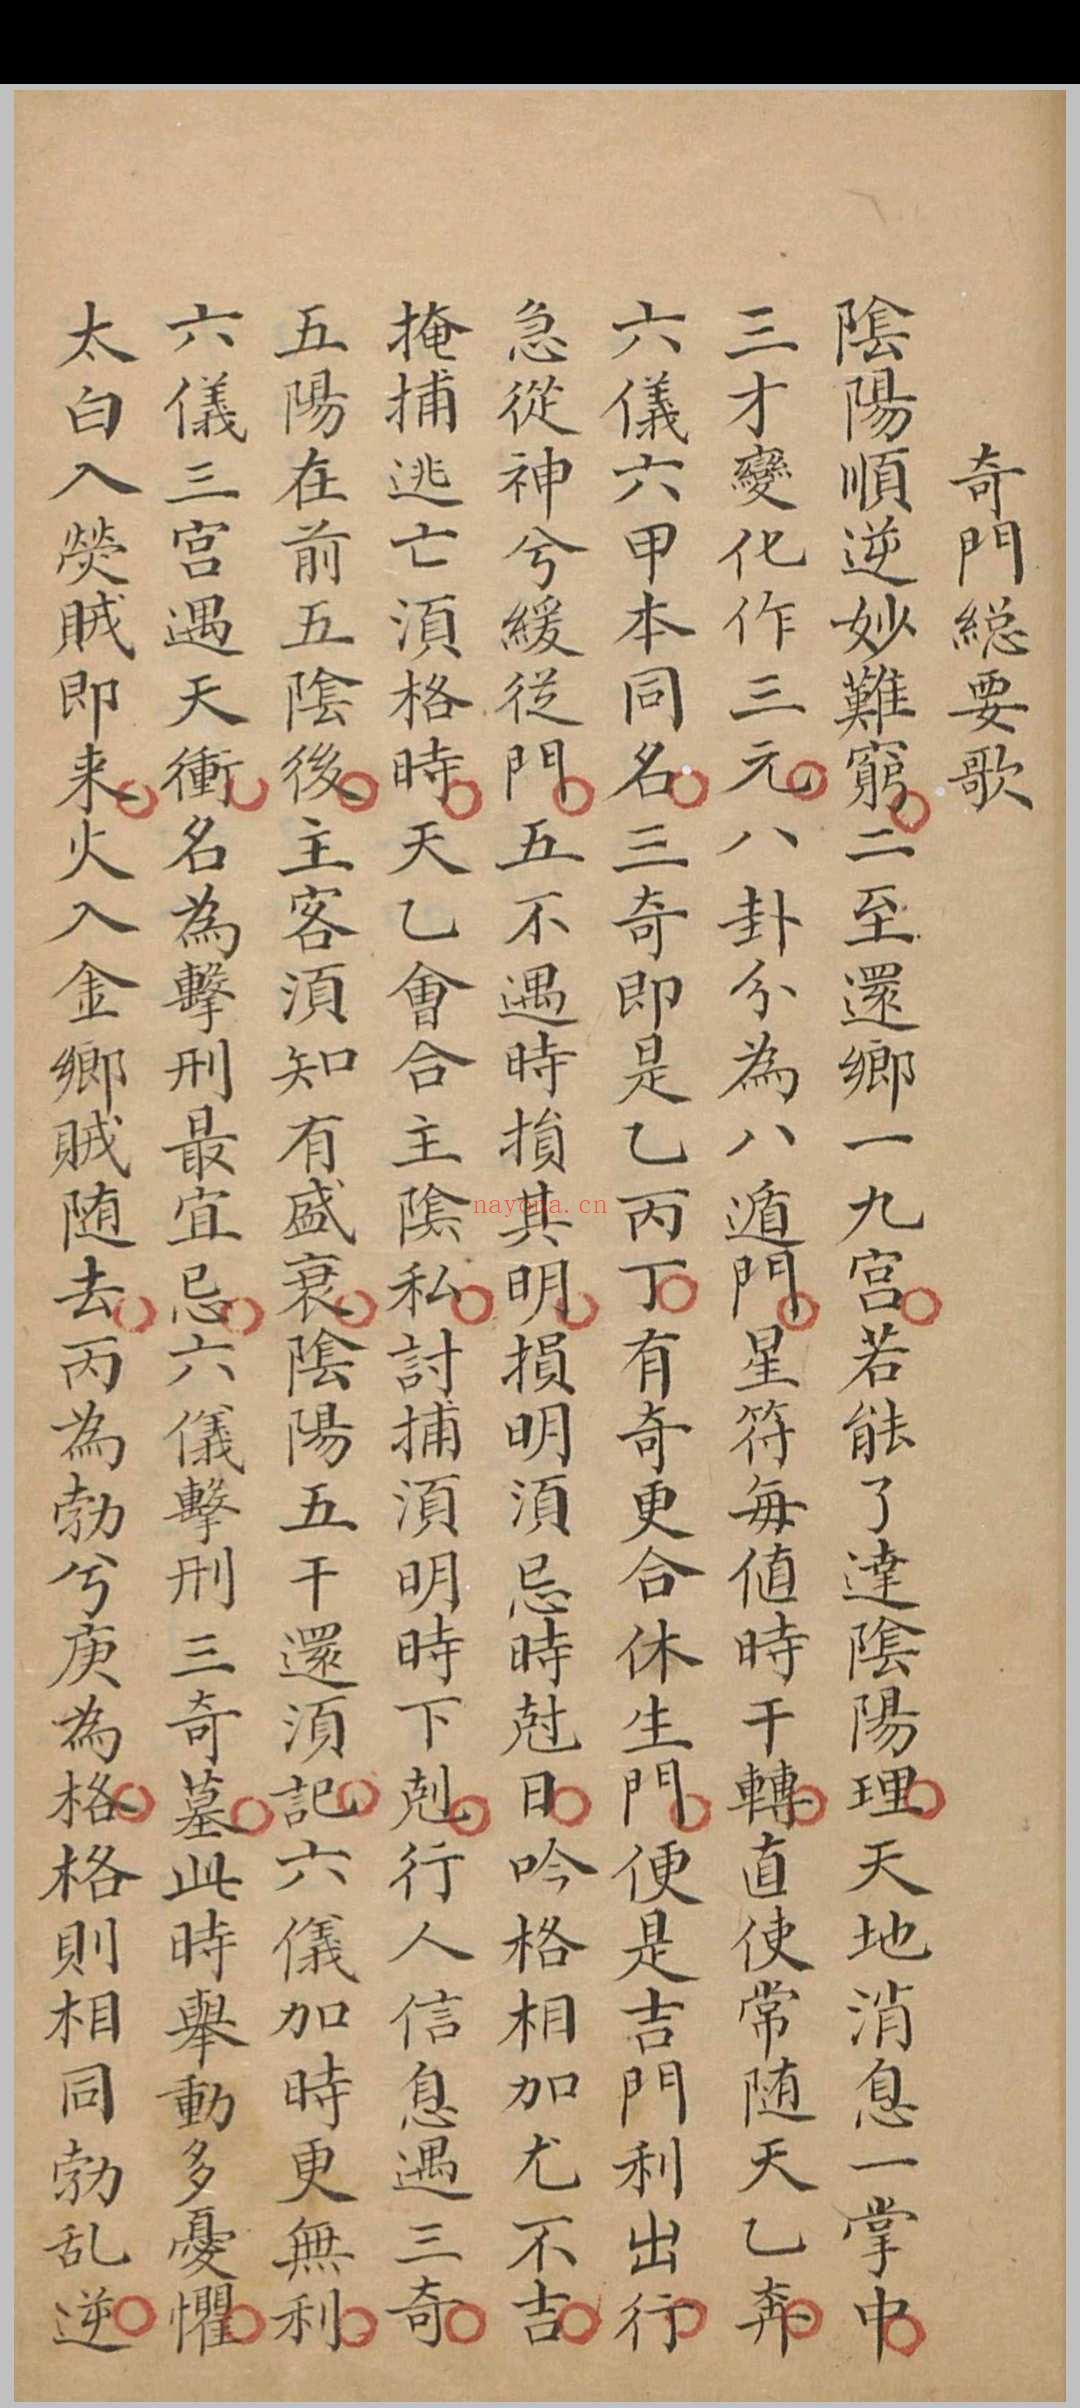 奇門総要歌
陰陽順逆妙難窮二至還鄉一九宮若能了達陰陽理天地消息一掌中
三才變化作三元八卦分為八遁門星符每值時干轉直使常随天乙奔
六儀六甲本同名三奇即是乙丙丁有奇更合休生門便是吉門利出行
急從神兮緩從門五不遇時損其明損明須忌時尅日吟格相加尤不吉
掩捕逃亡須格時天乙會合主陰私討捕須明時下剋行人信息遇三奇
五陽在前五陰後主客須知有盛衰陰陽五干還須記六儀加時更無利
六儀三宮遇天衝名為擊刑最宜忌六儀擊刑三奇墓此時舉動多憂懼
太白入熒賊即来火入金鄉賊随去丙為勃兮庚為格格則相同勃乱逆
nayona.cn